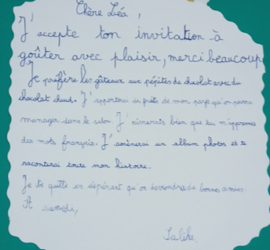 Chère Léa,
J'accepte ton invitation à
goûter avec plaisir, merci beaucoup
Je préfère les gâteaux aux pépites de chocolat avec du
chocolat chaud. J'apporterai de mon pays qu'on pourra
manger dans le salon. J'aimerais bien que tu m'apprennes
des mots français. J'amènerai un album photos et te
raconterai toute mon histoire.
Je te quitte en espérant qu'on deviendra de bonnes amies
À samedi,